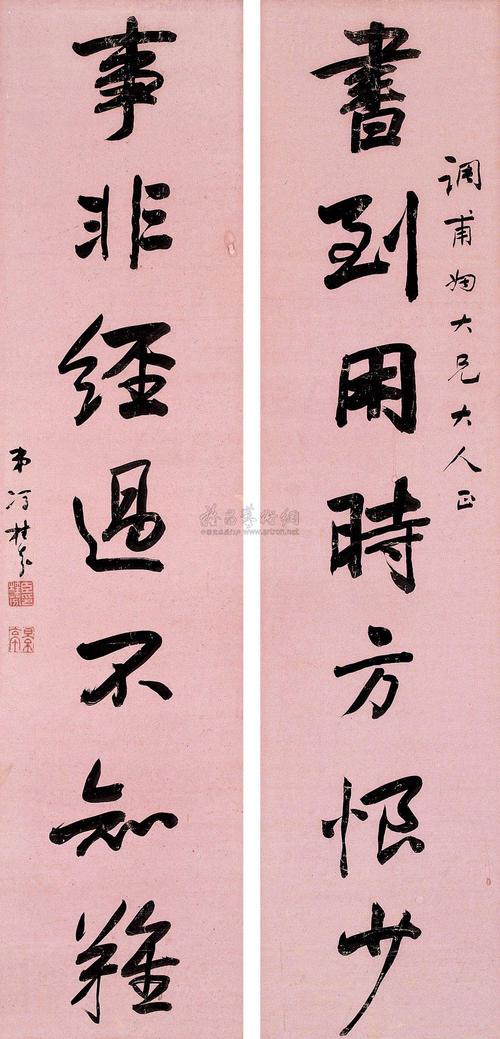 調甫姻大兄大人正
書到用時方恨少
事非經過不知難
弟馮桂芬
雅昌藝術網
www.artron.net